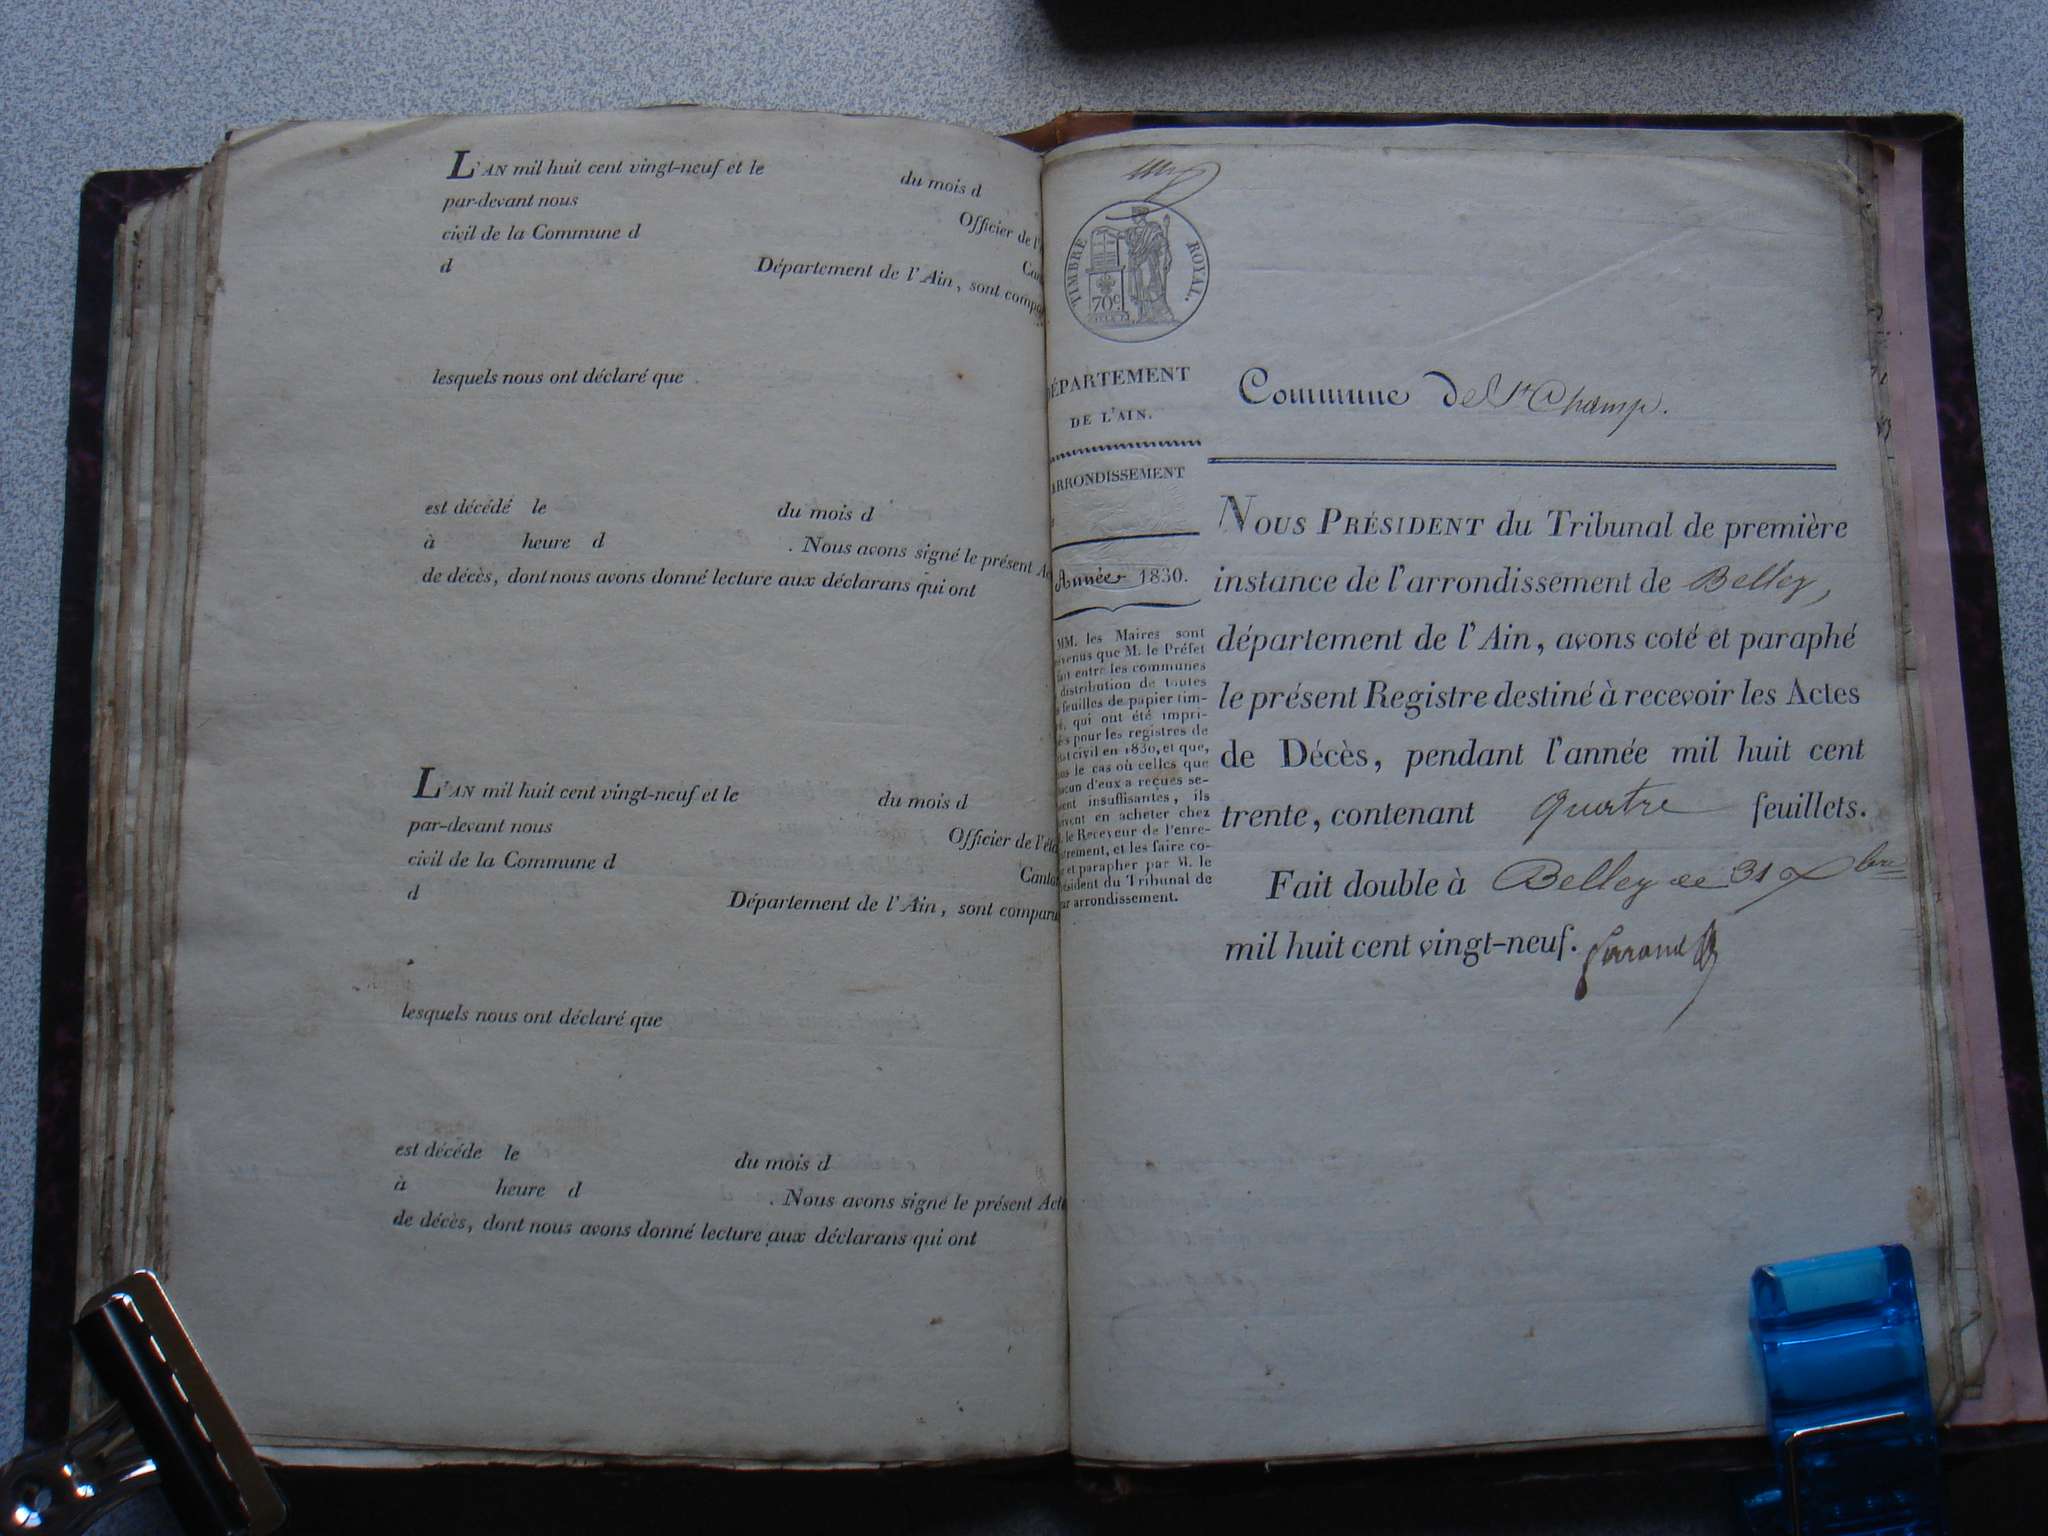 L'AN mil huit cent vingt-neuf et le du mois d
par-devant nous Officier de l'
civil de la Commune d
d Département de l'Ain, sont
lesquels nous ont déclaré que
est décédé le du mois d
à heure d . Nous avons signé le présent
de décès, dont nous avons donné lecture aux déclarans qui ont
L'AN mil huit cent vingt-neuf et le du mois d
par-devant nous Officier de l'
civil de la Commune d
d Département de l'Ain, sont
lesquels nous ont déclaré que
est décédé le du mois d
à heure d . Nous avons signé le présent Acte
de décès, dont nous avons donné lecture aux déclarans qui ont
TIMBRE ROYAL.
70c
DÉPARTEMENT
DE L'AIN.
ARRONDISSEMENT
Année 1830.
MM. les Maires sont
que M. le Préfet
entre les communes
distribution de toutes
feuilles de papier tim-
qui ont été impri-
pour les registres de
civil en 1830, et que,
le cas où celles que
d'eux a reçues se-
insuffisantes, ils
en acheter chez
le Receveur de l'enre-
et les faire co-
et parapher par M. le
du Tribunal de
arrondissement.
Commune de St Champ.
NOUS PRÉSIDENT du Tribunal de première
instance de l'arrondissement de Belley,
département de l'Ain, avons coté et paraphé
le présent Registre destiné à recevoir les Actes
de Décès, pendant l'année mil huit cent
trente, contenant quatre feuillets.
Fait double à Belley ce 31 Xbre
mil huit cent vingt-neuf.